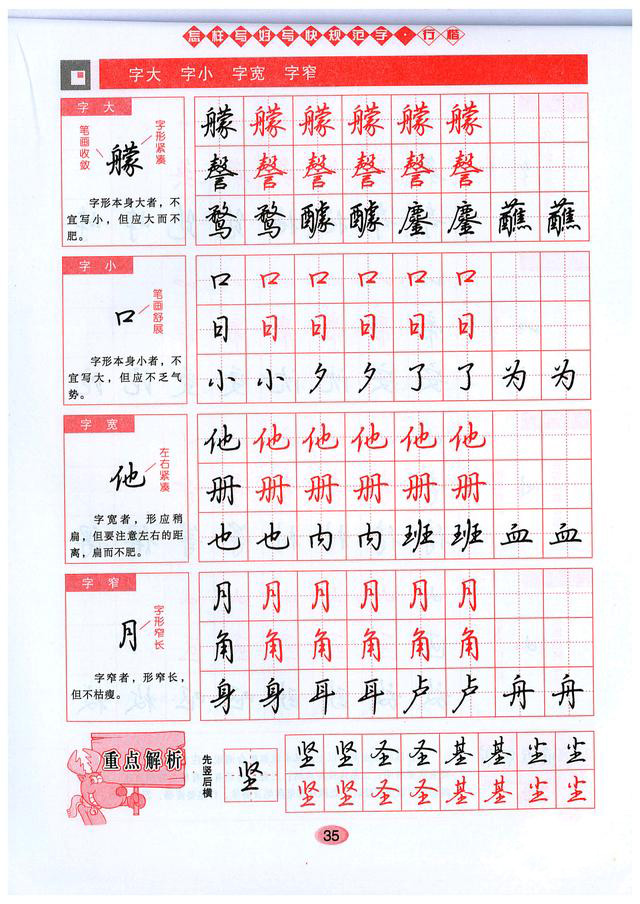 怎样写好写快规范字·行楷
字大 字小 字宽 字窄
字大
笔画收敛
艨
字形紧凑
字形本身大者，不
宜写小，但应大而不
肥。
艨 艨 艨 艨 艨 艨
謦 謦 謦 謦 謦 謦
鹜 鹜 醵 醵 鏖 鏖 蘸 蘸
字小
口
笔画舒展
字形本身小者，不
宜写大，但应不乏气
势。
口 口 口 口 口 口
日 日 日 日 日 日
小 小 夕 夕 了 了 为 为
字宽
他
左右紧凑
字宽者，形应稍
扁，但要注意左右的距
离，扁而不肥。
他 他 他 他 他 他
册 册 册 册 册 册
也 也 内 内 班 班 血 血
字窄
月
字形窄长
字窄者，形窄长，
但不枯瘦。
月 月 月 月 月 月
角 角 角 角 角 角
身 身 耳 耳 卢 卢 舟 舟
重点解析
先竖后横
坚
坚 坚 圣 圣 基 基 尘 尘
坚 坚 圣 圣 基 基 尘 尘
35